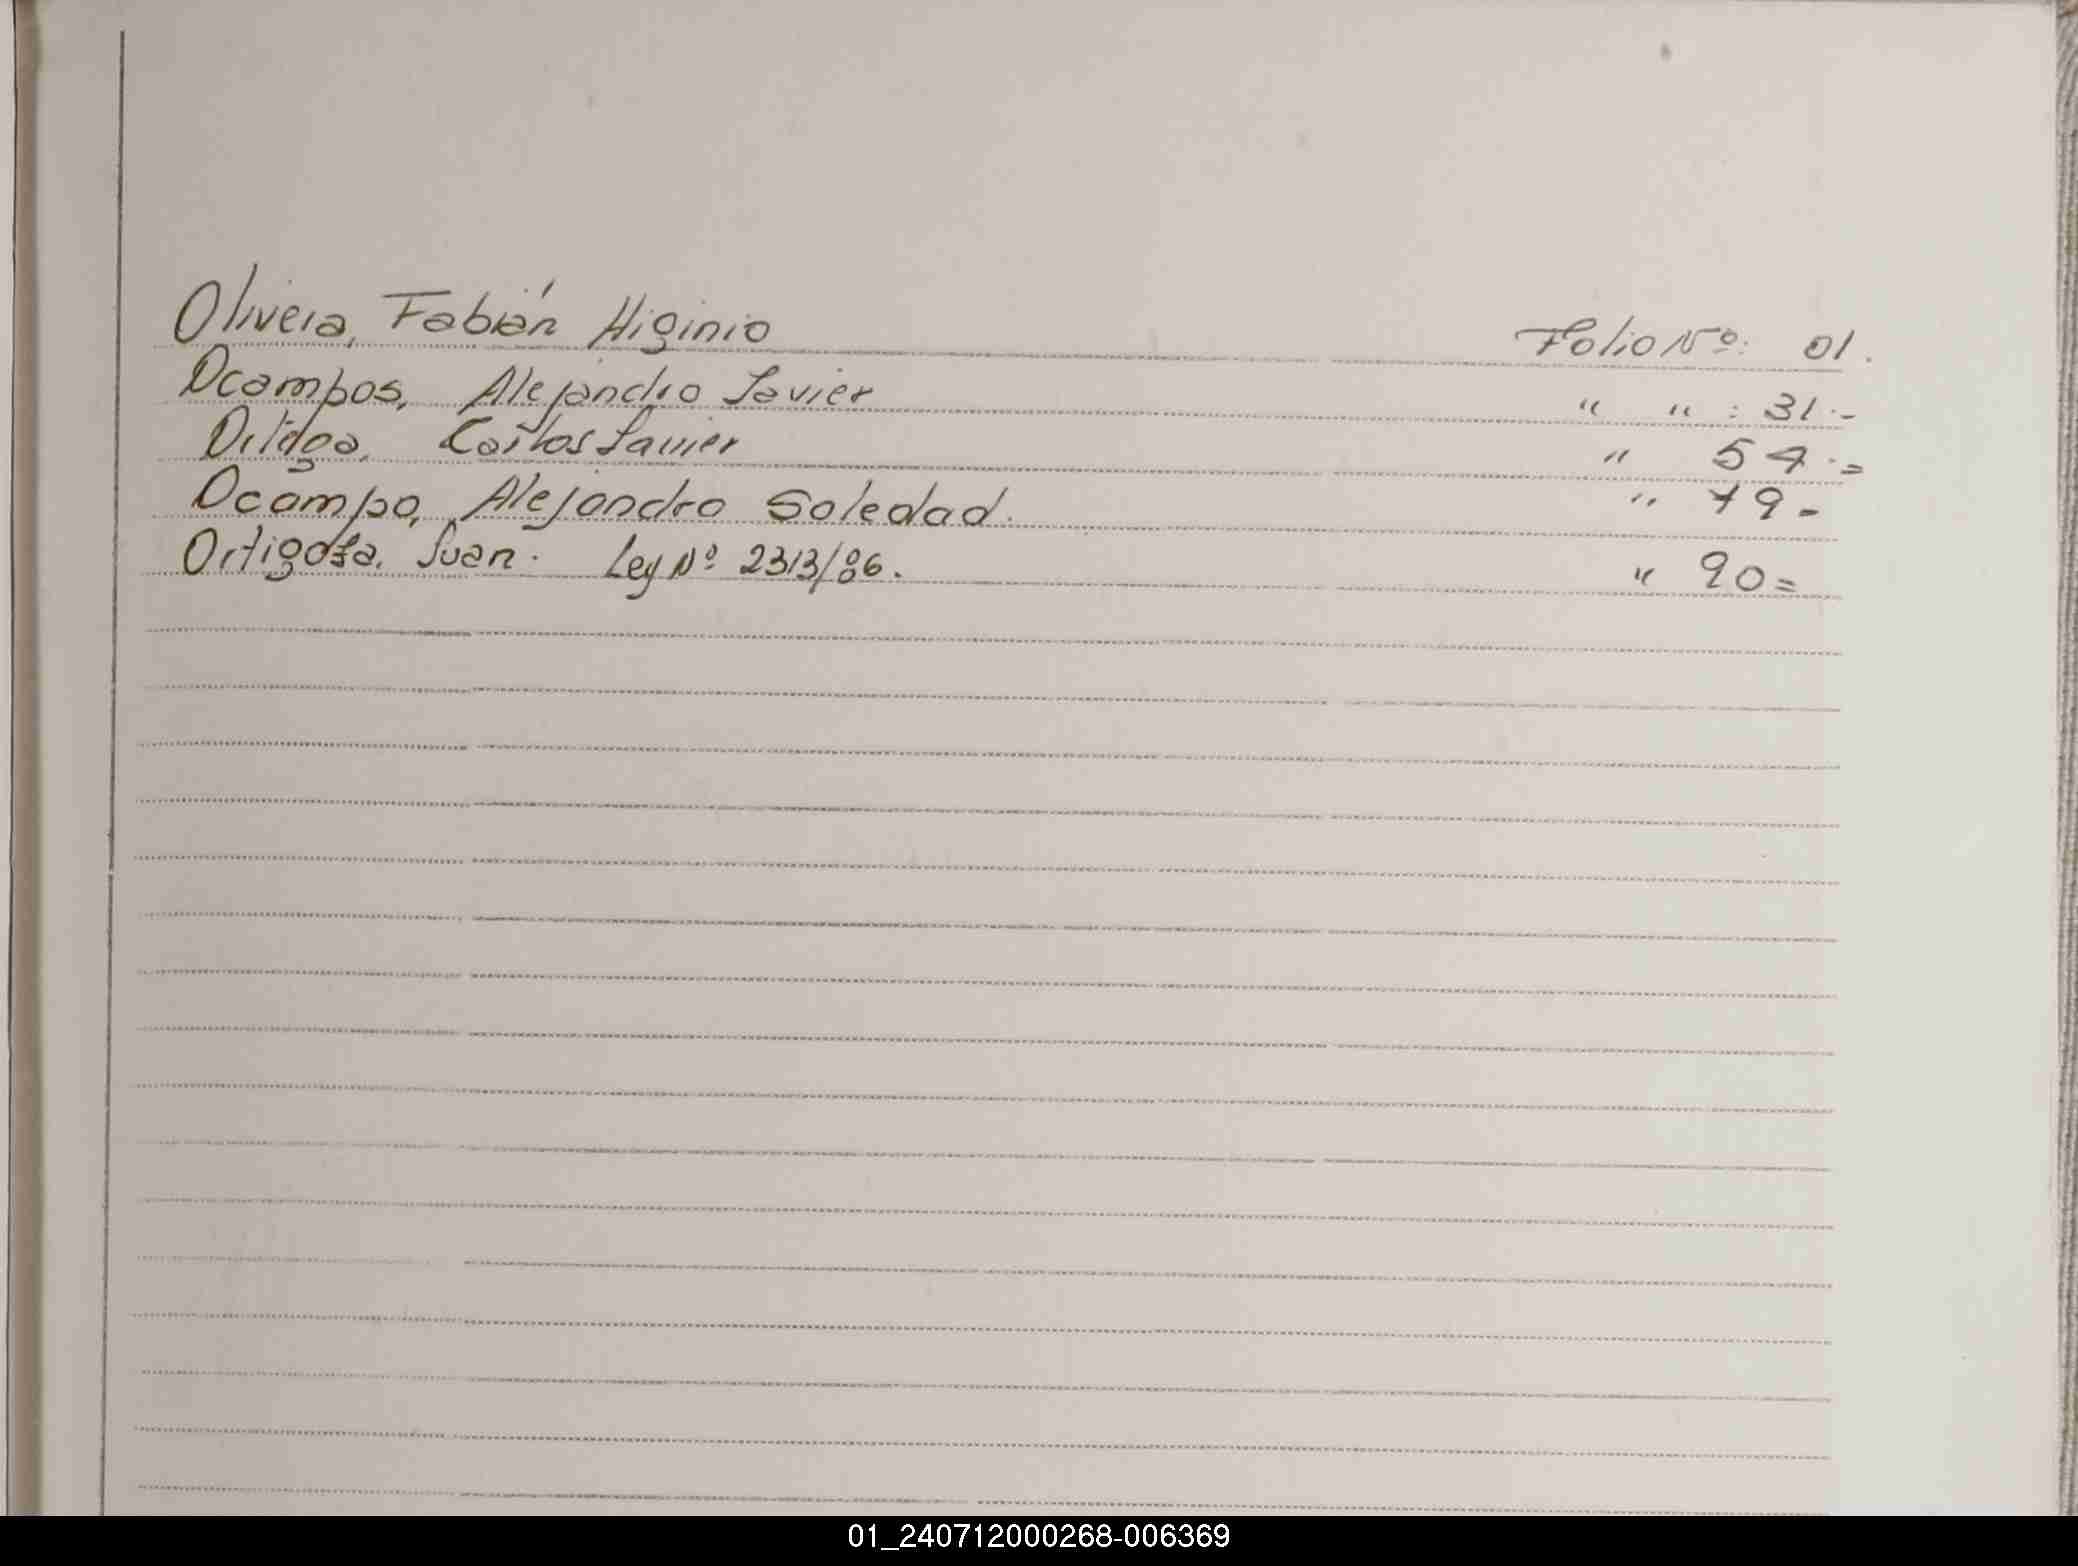 Olivera, Fabián Higinio Folio Nº: 01.
Ocampos, Alejandro Javier " " : 31.-
Ortega, Carlos Javier " 54.=
Ocampo, Alejandro Soledad. " 79-
Ortigoza, Juan. Ley Nº 2313/86. " 90=
01_240712000268-006369